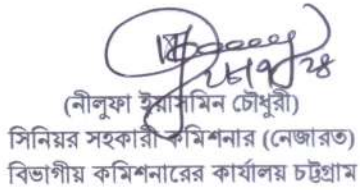 (নীলুফা ইয়াসমিন চৌধুরী)
সিনিয়র সহকারী কমিশনার (নেজারত)
বিভাগীয় কমিশনারের কার্যালয় চট্টগ্রাম